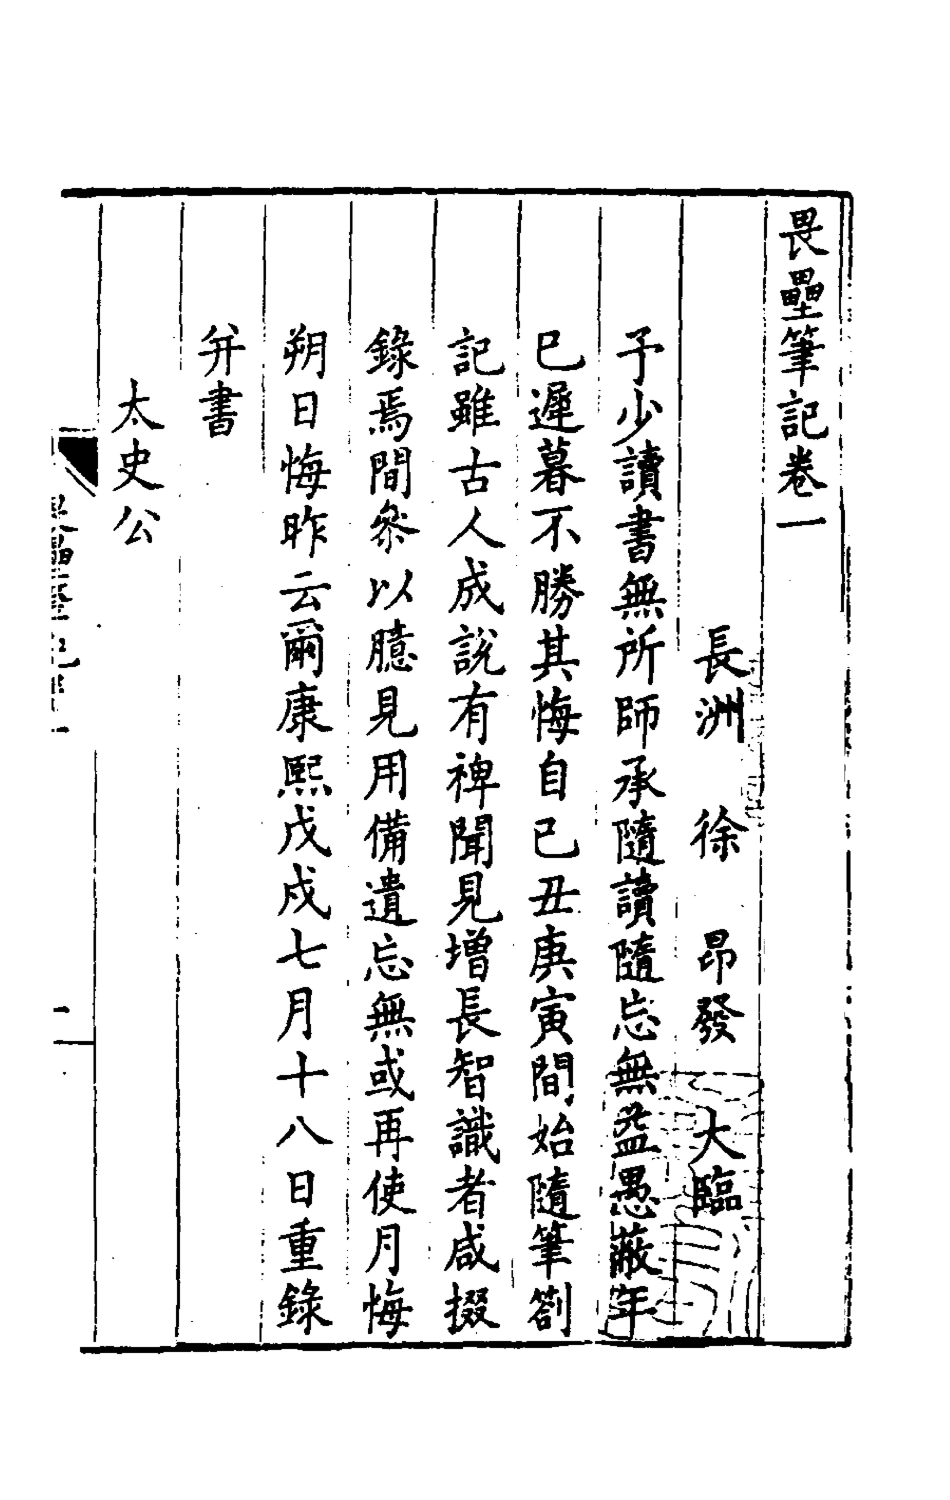 畏壘筆記卷一
長洲 徐 昂發 大臨
予少讀書無所師承隨讀隨忘無益愚蔽年
已遲暮不勝其悔自己丑庚寅間始隨筆劄
記雖古人成說有裨聞見增長智識者咸掇
錄焉間叅以臆見用備遺忘無或再使月悔
朔日悔昨云爾康熙戊戌七月十八日重錄
并書
太史公
一